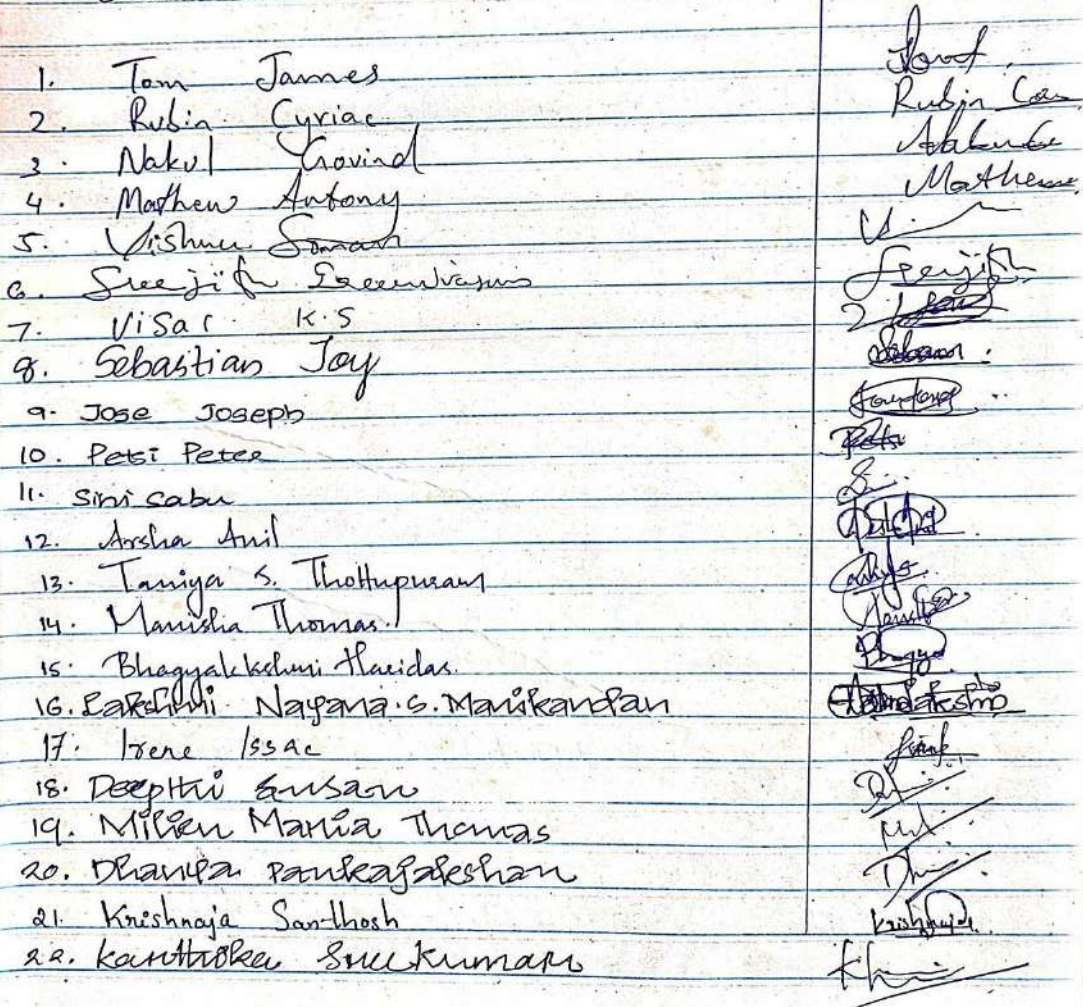 1. Tom James
2. Rubin Cyriac Rubin
3. Nakul Govind
4. Mathew Antony Mathew
5. Vishnu Soman
6. Sreejith Sreenivasan Sreejith
7. Visal K.S
8. Sebastian Joy
9. Jose Joseph
10. Petsi Peter Petsi
11. Sini Sabu
12. Arsha Anil
13. Taniya S. Thottupuram
14. Manisha Thomas
15. Bhagyalekshmi Haridas Bhagya
16. Lakshmi Nayana.S.Manikandan
17. Irene Issac
18. Deepthi Susan
19. Milien Maria Thomas
20. Dhanya Pankajakshan
21. Krishnaja Santhosh Krishnaja
22. Karthika Sreekumar